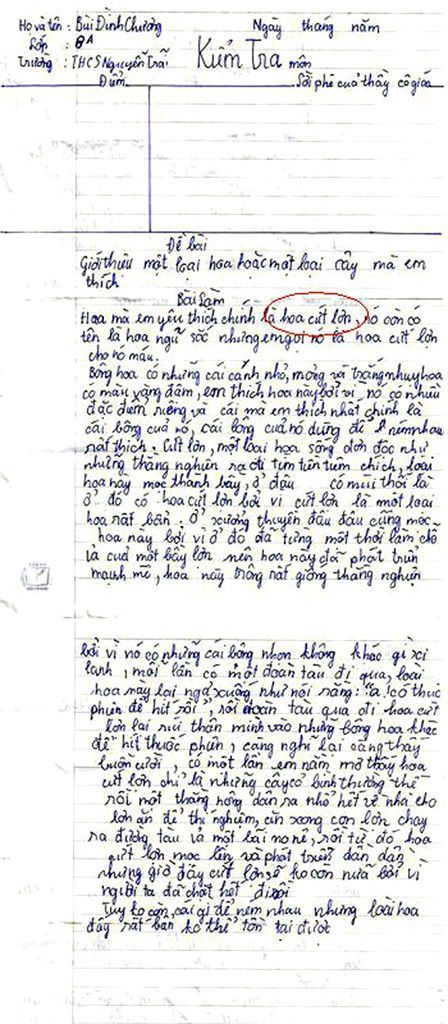 Họ và tên : Bùi Đình Chương Ngày tháng năm
Lớp : 8A
Trường : THCS Nguyễn Trãi Kiểm Tra môn
Điểm Lời phê của thầy cô giáo
Đề bài
Giới thiệu một loại hoa hoặc một loại cây mà em
thích
Bài làm
Hoa mà em yêu thích chính là hoa cứt lợn, nó còn có
tên là hoa ngũ sắc nhưng em gọi nó là hoa cứt lợn
cho nó máu.
Bông hoa có những cái cánh nhỏ, mỏng và trắng nhụy hoa
có màu vàng đậm, em thích hoa này bởi vì nó có nhiều
đặc điểm riêng và cái mà em thích nhất chính là
cái bông của nó, cái bông của nó dùng để ném nhau
rất thích. Cứt lợn, một loại hoa sống đơn độc như
những thằng nghiện ra đi tìm tiên tìm chích, loài
hoa này mọc thành bầy, ở đâu có mùi thối là
ở đó có hoa cứt lợn bởi vì cứt lợn là một loại
hoa rất bẩn. Ở xưởng thuyền đâu đâu cũng mọc
hoa này bởi vì ở đó đã từng một thời làm chỗ
ỉa của một bầy lợn nên hoa này đã phát triển
mạnh mẽ, hoa này trông rất giống thằng nghiện
bởi vì nó có những cái bông nhọn không khác gì xi
lanh, mỗi lần có một đoàn tàu đi qua, loài
hoa này lại ngả xuống như nói rằng: "a! có thuốc
phiện để hít rồi", rồi đoàn tàu qua đi hoa cứt
lợn lại rúi thân mình vào những bông hoa khác
để hít thuốc phiện, càng nghĩ lại càng thấy
buồn cười, có một lần em nằm mơ thấy hoa
cứt lợn chỉ là những cây cỏ bình thường thế
rồi một thằng nông dân ra nhổ hết về nhà cho
lợn ăn để thí nghiệm, ăn xong con lợn chạy
ra đường tàu và một bãi no nê, rồi từ đó hoa
cứt lợn mọc lên và phát triển dần dần
nhưng giờ đây cứt lợn sẽ ko còn nữa bởi vì
người ta đã chặt hết đi rồi
Tuy ko còn cái gì để ném nhau nhưng loài hoa
đấy rất bẩn ko thể tồn tại được